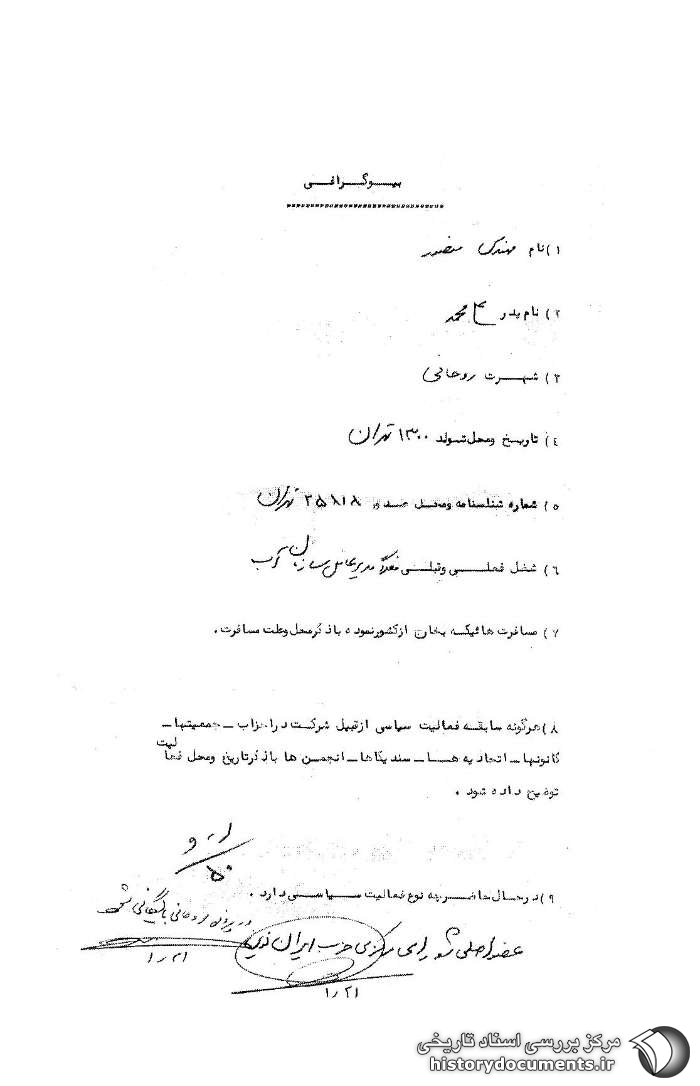 بیوگرافی
۱) نام مهندس منصور
۲) نام پدر محمد
۳) شهرت روحانی
۴) تاریخ ومحل تولد ۱۳۰۰ تهران
۵) شماره شناسنامه ومحل صدور ۲۵۸۱۸ تهران
۶) شغل فعلی وقبلی مدیرعامل سازمان آب
۷) مسافرت هائیکه بخارج ازکشورنموده باذکرمحل وعلت مسافرت.
۸) هرگونه سابقه فعالیت سیاسی ازقبیل شرکت دراحزاب ـ جمعیتها ـ
کانونها ـ اتحادیه هـا ـ سندیکاها ـ انجمن ها باذکرتاریخ ومحل فعالیت
توضیح داده شود.
۹) درحال حاضر چه نوع فعالیت سیاسی دارد.
در پرونده روحانی بایگانی شود
۲۱ر۱
عضو اصلی شورای مرکزی حزب ایران نوین
۲۱ر۱
مرکز بررسی اسناد تاریخی
historydocuments.ir